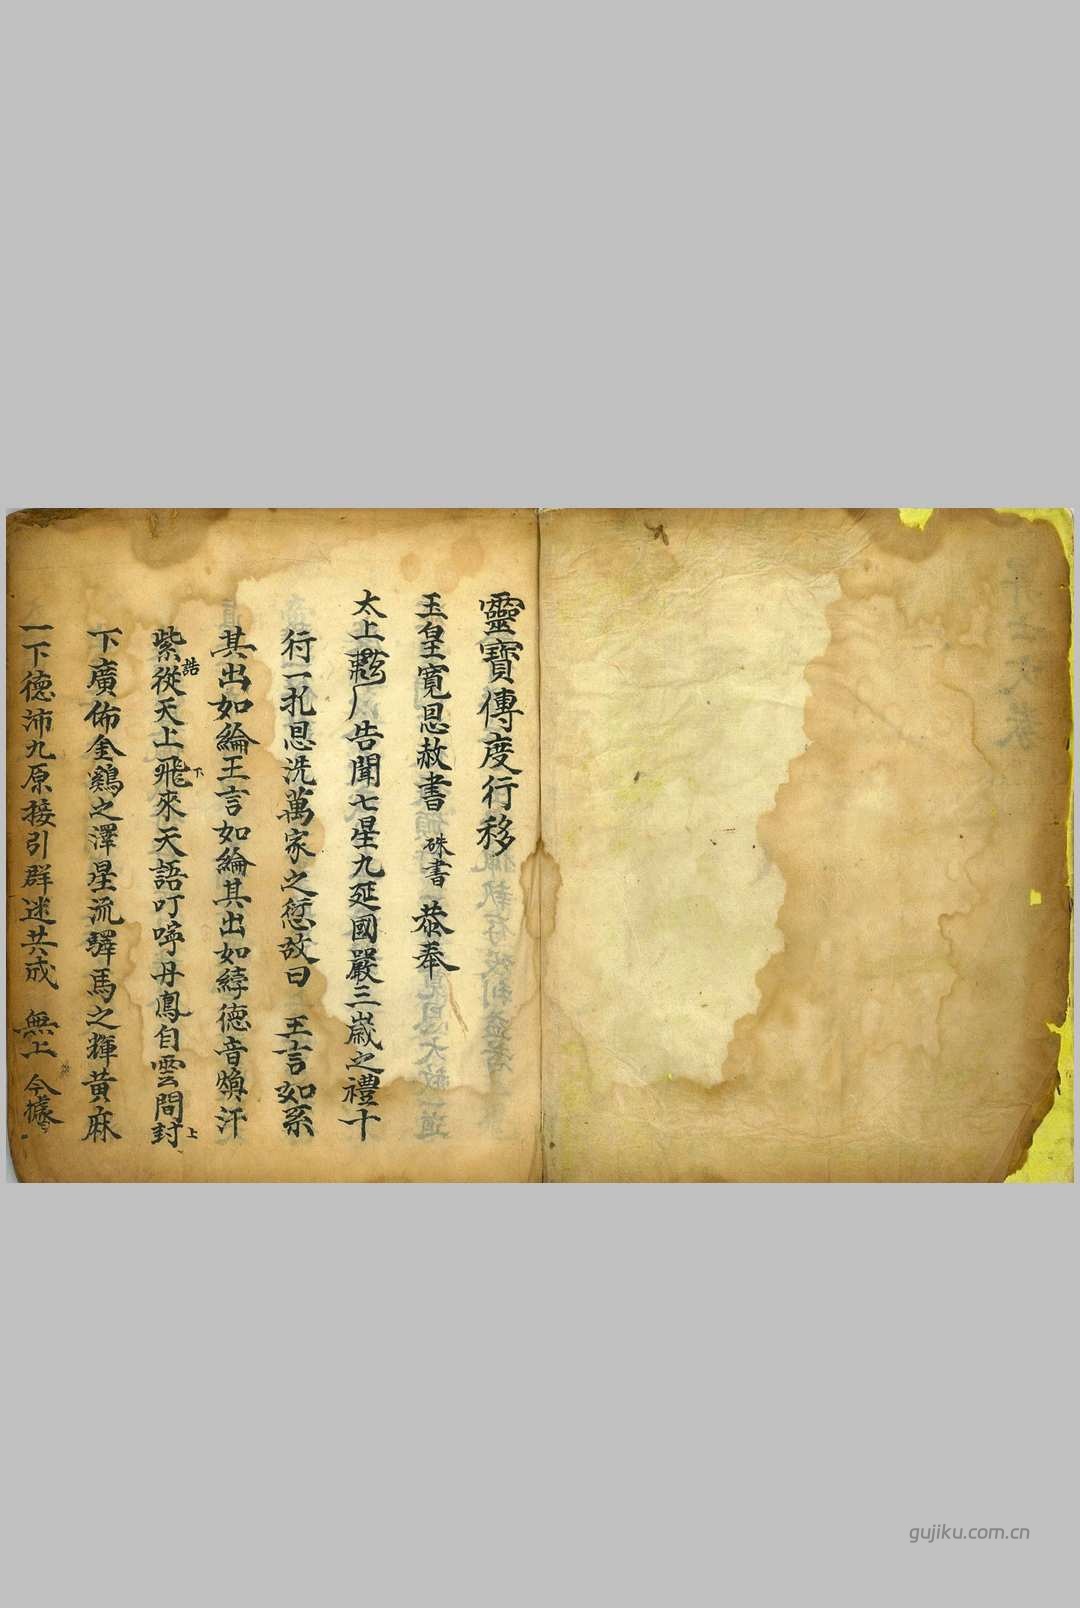 靈寶傳度行移
玉皇寬恩赦書 硃書 恭奉
太上厂告聞七星九延國嚴三歲之禮十
行一扎恩洗萬家之愆故曰 王言如系
其出如綸王言如綸其出如綍德音煥汗
紫誥從天上飛下來天語叮嚀丹鳳自雲間封上
下廣佈金鷄之澤星流驛馬之輝黃麻
一下德沛九原接引群迷共戒 無上 今據
gujiku.com.cn